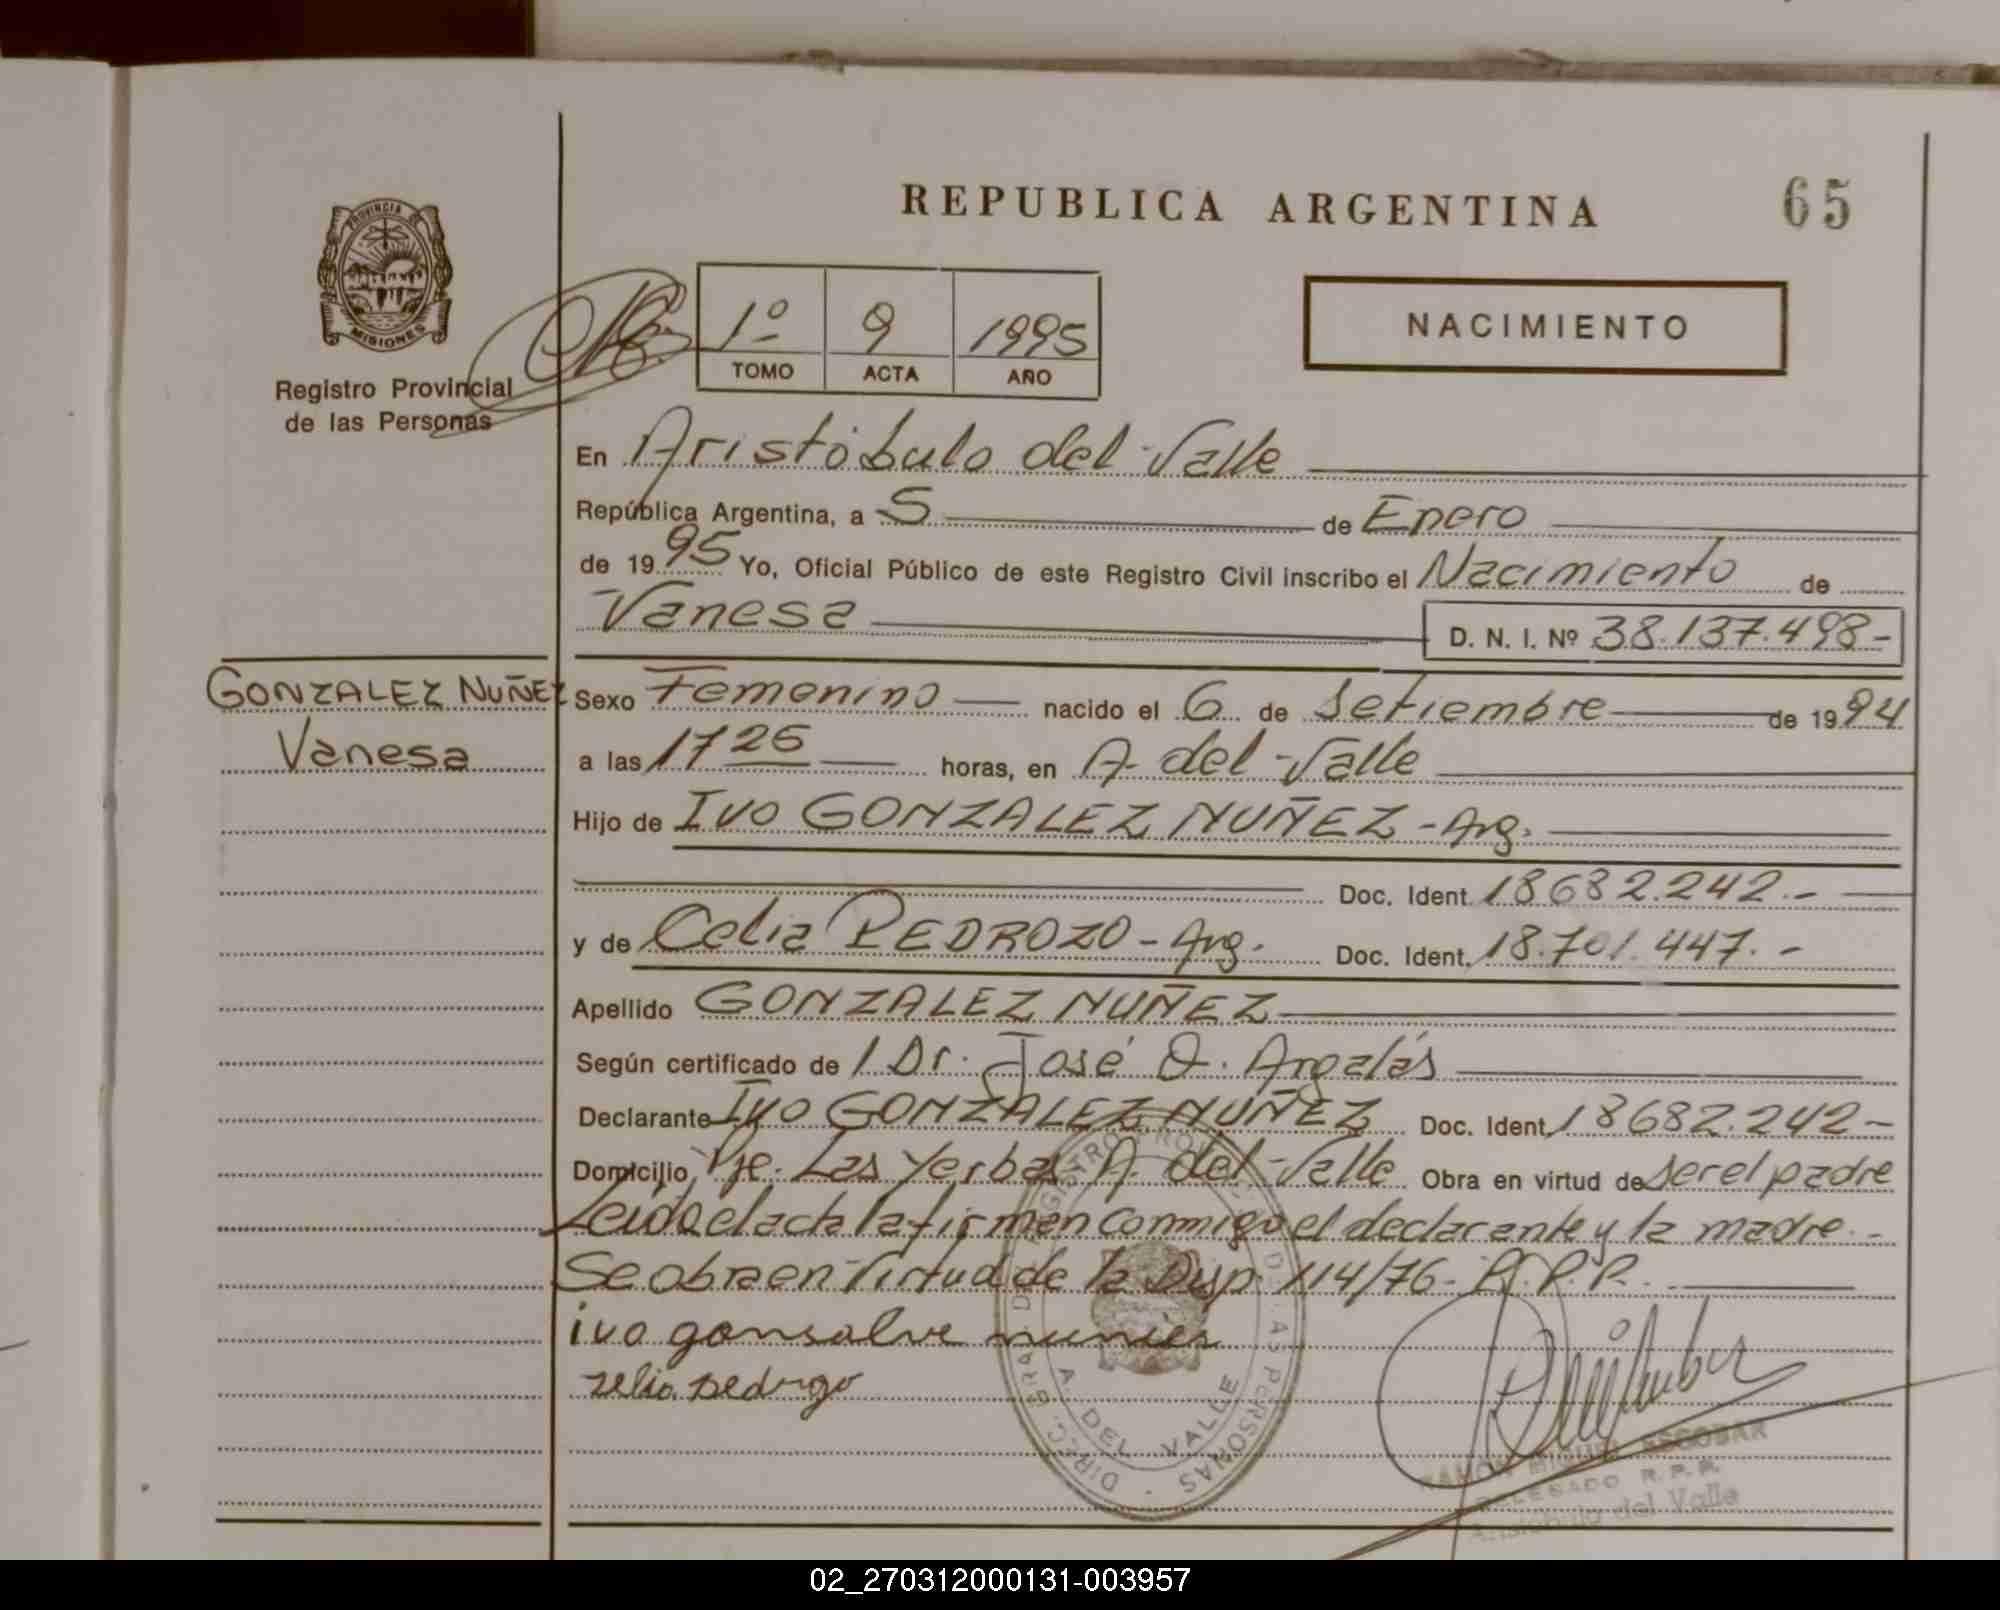 REPUBLICA ARGENTINA
65
PROVINCIA DE
MISIONES
Registro Provincial
de las Personas
1º 9 1995
TOMO ACTA AÑO
NACIMIENTO
En Aristóbulo del Valle
República Argentina, a 5 de Enero
de 1995 Yo, Oficial Público de este Registro Civil inscribo el Nacimiento de
Vanesa D. N. I. Nº 38.137.498-
GONZALEZ NUÑEZ
Vanesa
Sexo Femenino nacido el 6 de Setiembre de 1994
a las 1725 horas, en A. del Valle
Hijo de Ivo GONZALEZ NUÑEZ - Arg.
Doc. Ident. 18682.242.-
y de Celia PEDROZO - Arg. Doc. Ident. 18.701.447.-
Apellido GONZALEZ NUÑEZ
Según certificado de 1 Dr. José O. Argalás
Declarante Ivo GONZALEZ NUÑEZ Doc. Ident. 18682.242-
Domicilio Pje. Las Yerbas A. del Valle Obra en virtud de ser el padre
Leida el acta la firman conmigo el declarante y la madre.-
Se obra en Virtud de la Disp. 114/76- R.P.P.
ivo gonsalve nunies
zelia pedrogo
REGISTRO PROVINCIAL DE LAS PERSONAS
DIREC. GRAL. DEL
A. DEL VALLE
RAMON MIGUEL ESCOBAR
DELEGADO R.P.P.
Aristóbulo del Valle
02_270312000131-003957